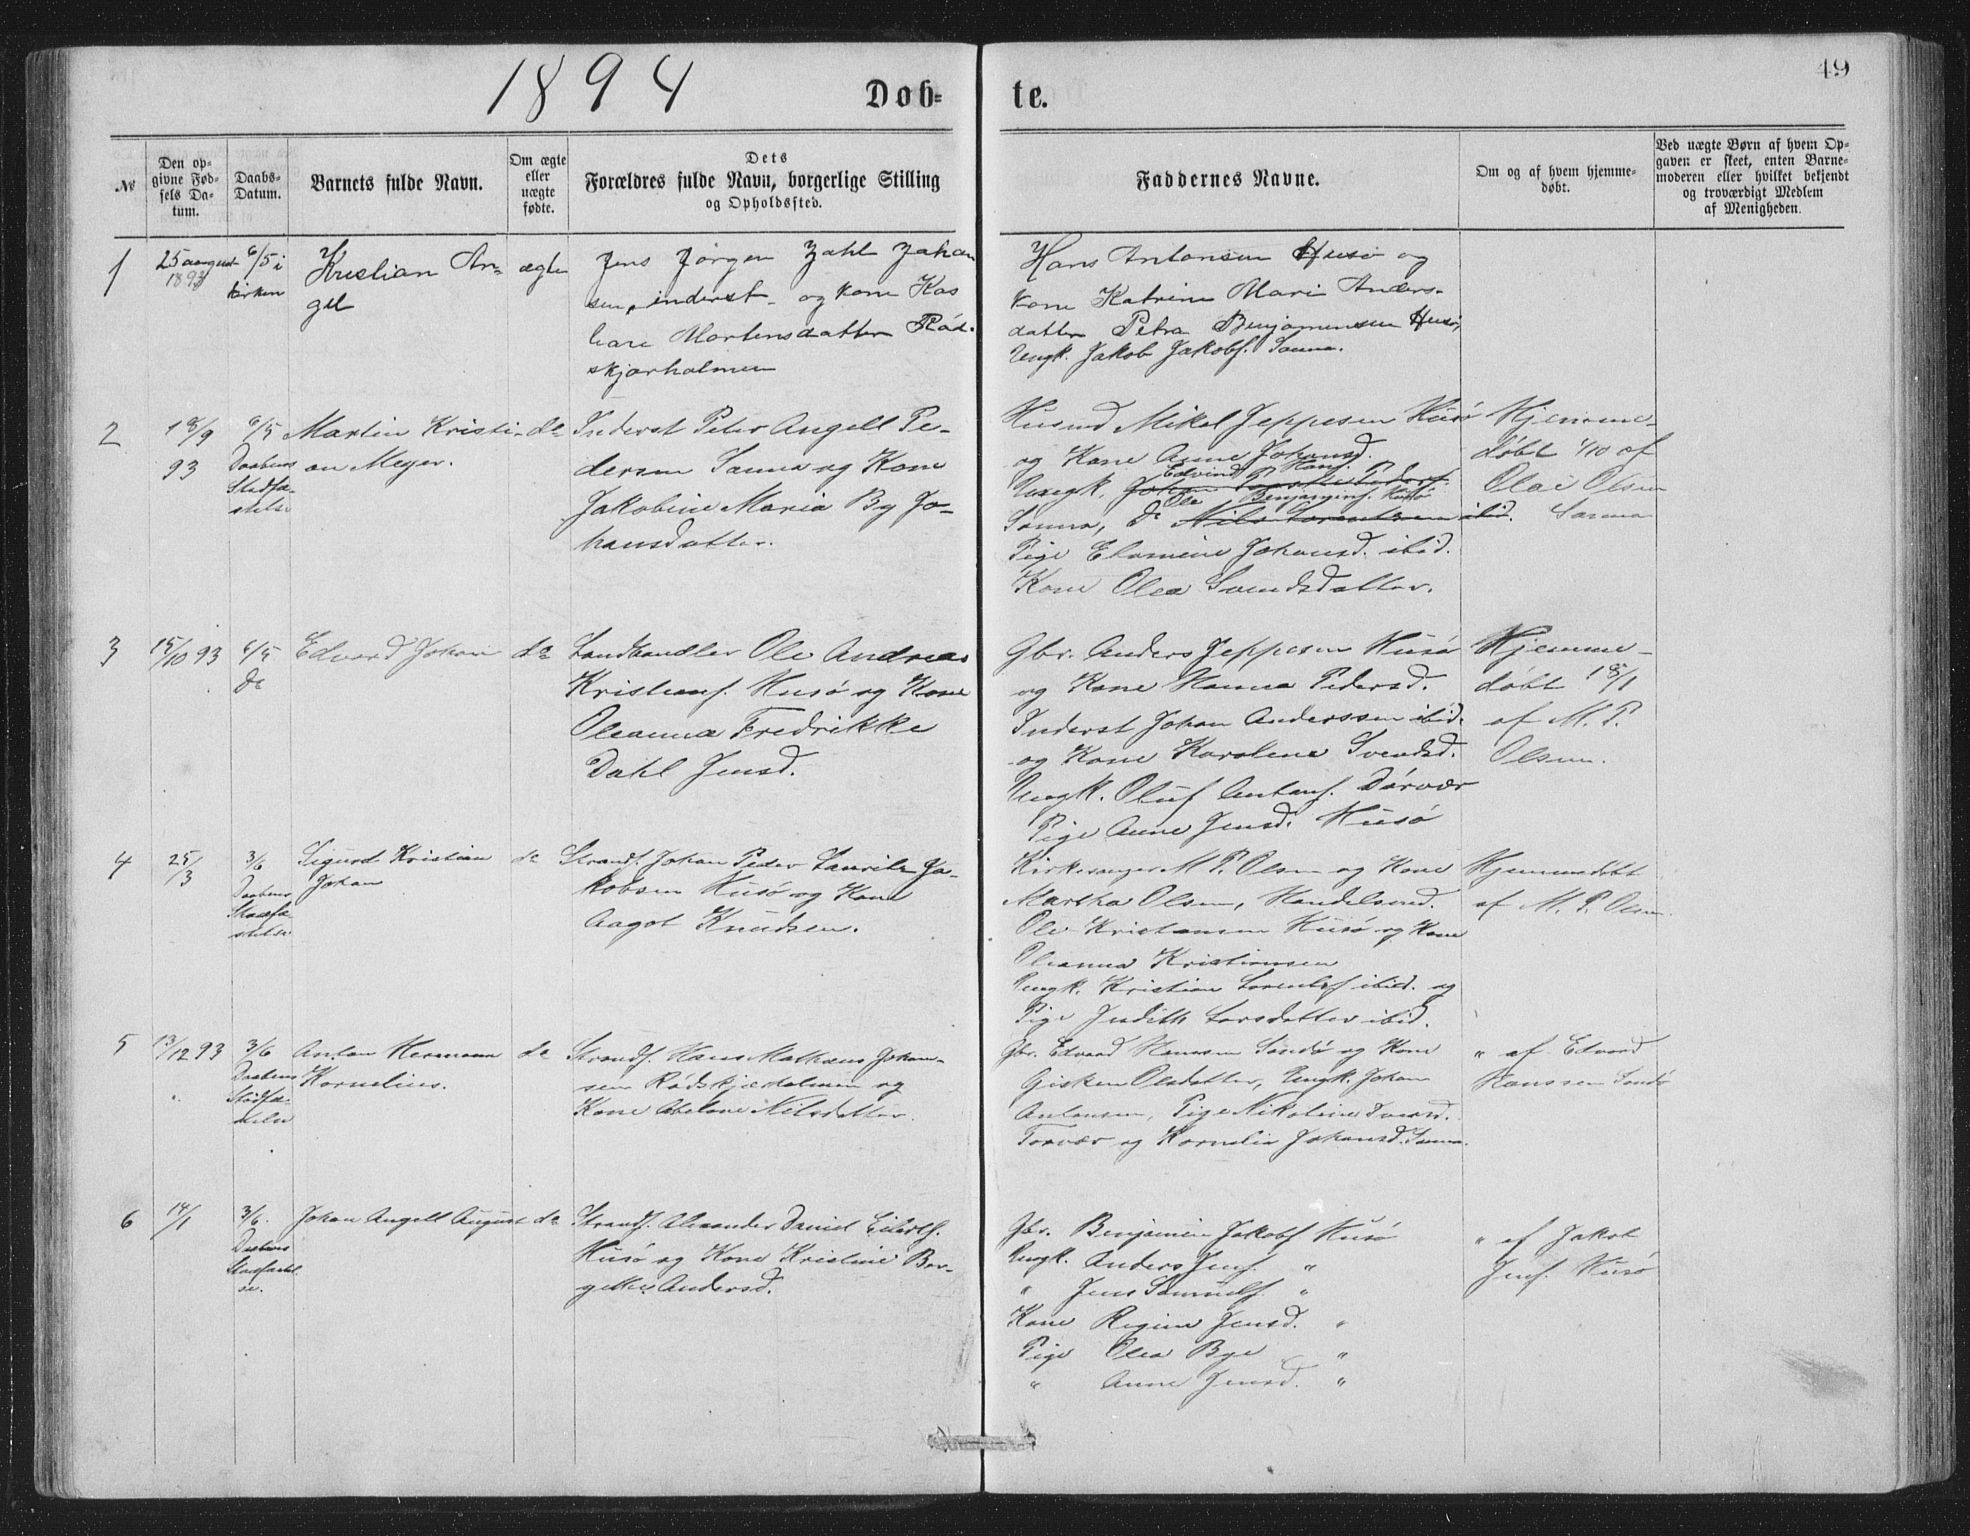 1894
Døb-
te.
49
№
Den op-
givne Fød-
sels Da-
tum.
Daabs-
Datum.
Barnets fulde Navn.
Om ægte
eller
uægte
fødte.
Dets
Forældres fulde Navn, borgerlige Stilling
og Opholdssted.
Faddernes Navne.
Om og af hvem hjemme-
døbt.
Ved uægte Børn af hvem Op-
gaven er skeet, enten Barne-
moderen eller hvilket bekjendt
og troværdigt Medlem
af Menigheden.
1
25 august
1893
6/5 i
kirken
Kristian An-
gel
ægte
Jens Jörgen Zahl Johan
sen, inderst og kone Kas
Mortensdatter Röd-
skjærholmen
Hans Antonsen Husö og
kone Katrine Mari Anders-
datter Petra Benjaminsen Husö,
Ungk. Jakob Jakobs. Sanna.
2
18/9
93
6/5
Daabens
Stadfæ-
stelse
Martin Kristi-
an Meyer.
do
Inderst Peter Angell Pe-
dersen Sanna og Kone
Jakobine Maria By Jo-
hansdatter.
Husmd Mikal Jeppesen Husö
og Kone Anne Johansd.
Edvind Hans.
Ungk. Johan Peders.
Ole Benjamins. Husö
Sanna, do Nils Lorentsen ibid.
Pige Elomine Johansd. ibid.
Kone Olea Svendsdatter.
Hjemme-
döbt 1/10 af
Olai Olsen
Sanna
3
15/10 93
6/5
do
Edvard Johan
do
Landhandler Ole Andreas
Kristians. Husö og Kone
Oleanna Fredrikke
Dahl Jensd.
Gbr. Anders Jeppesen Husö
og Kone Hanna Pedersd.
Inderst Johan Anderssen ibid.
og Kone Karolina Svendsd.
Ungk. Oluf Antons. Dörvær
Pige Anne Jensd. Husö
Hjemme-
döbt 18/1
af M. P.
Olsen.
4
25/3
3/6
Daabens
Stadfæ-
stelse
Sigurd Kristian
Johan
do
Strands. Johan Peder Lauritz Ja-
kobsen Husö og Kone
Aagot Knudsen.
Kirkesanger M P. Olsen og Kone
Martha Olsen, Handelsmd.
Ole Kristiansen Husö og Kone
Oleanna Kristiansen
Ungk. Kristian Lorents. ibid. og
Pige Judith Larsdatter ibid.
Hjemmedöbt
af M. P. Olsen.
5
13/12 93
3/6
Daabens
Stadfæ-
stelse
Anton Hermann
Kornelius.
do
Strands. Hans Mathias Johan-
sen Rödskjærholmen og
Kone Abelone Nilsdatter.
Gbr. Edvard Hanssen Sandö og Kone
Gisken Olsdatter, Ungk. Johan
Antonsen, Pige Nikoline
Torvær og Kornelia Johansd. Sanna.
" af Edvard
Hanssen Sandö
6
14/1
3/6.
Daabens
Stadfæstel
se.
Johan Angell August
do
Strands. Alexander Daniel Eilerts.
Husö og Kone Kristine Ber-
gitte Andersd.
Gbr. Benjamin Jakobs Husö
Ungk. Anders Jens. "
" Jens Samuels. "
Kone Regine Jensd. "
Pige Olea Bye "
" Anne Jensd. "
" af Jakob
Jens. Husö